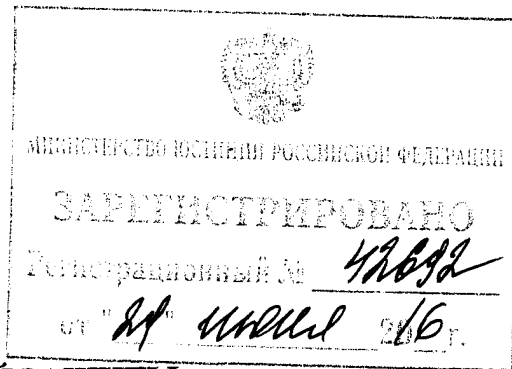 МИНИСТЕРСТВО ЮСТИЦИИ РОССИЙСКОЙ ФЕДЕРАЦИИ
ЗАРЕГИСТРИРОВАНО
Регистрационный № 42692
от " " июня 2016 г.